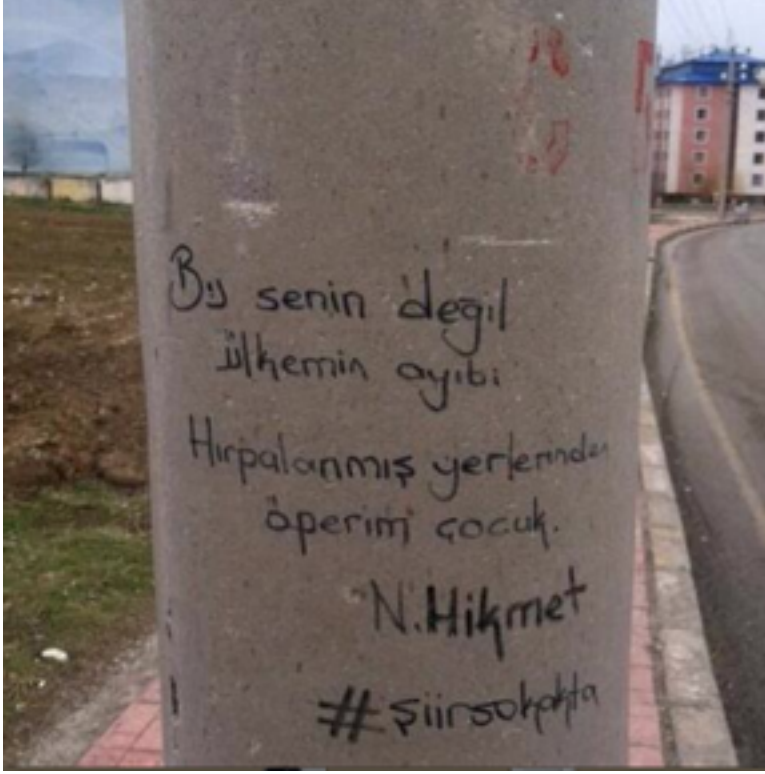 Bu senin değil
ülkemin ayıbı
Hırpalanmış yerlerinden
öperim çocuk.
N.Hikmet
#şiirsokakta